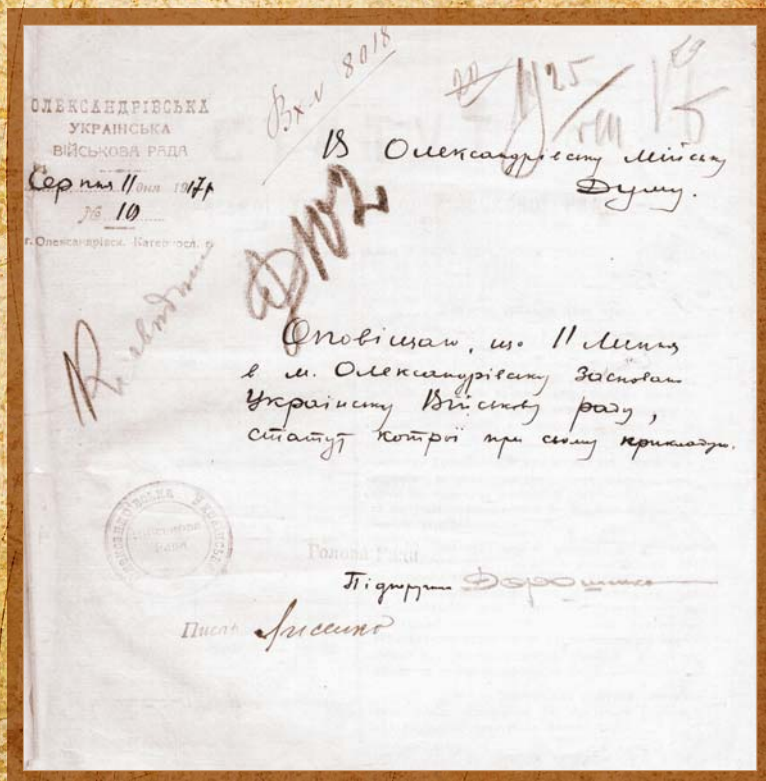 Вх. № 8018
25/VIII
ОЛЕКСАНДРІВСЬКА
УКРАІНСЬКА
ВІЙСЬКОВА РАДА
Серпня 11 дня 1917 р
№ 10
г. Олександрівск, Катериносл. г.
В Олександрівську Мійську
Думу.
Оповіщаю, що 11 Липня
в м. Олександрівську заснован
Українську Військову раду,
статут котрої при сьому прикладую.
ОЛЕКСАНДРІВСЬКА УКРАІНСЬКА
Військова
Рада
Голова Ради
Підпоручик Дорошенко
Писар Лисенко